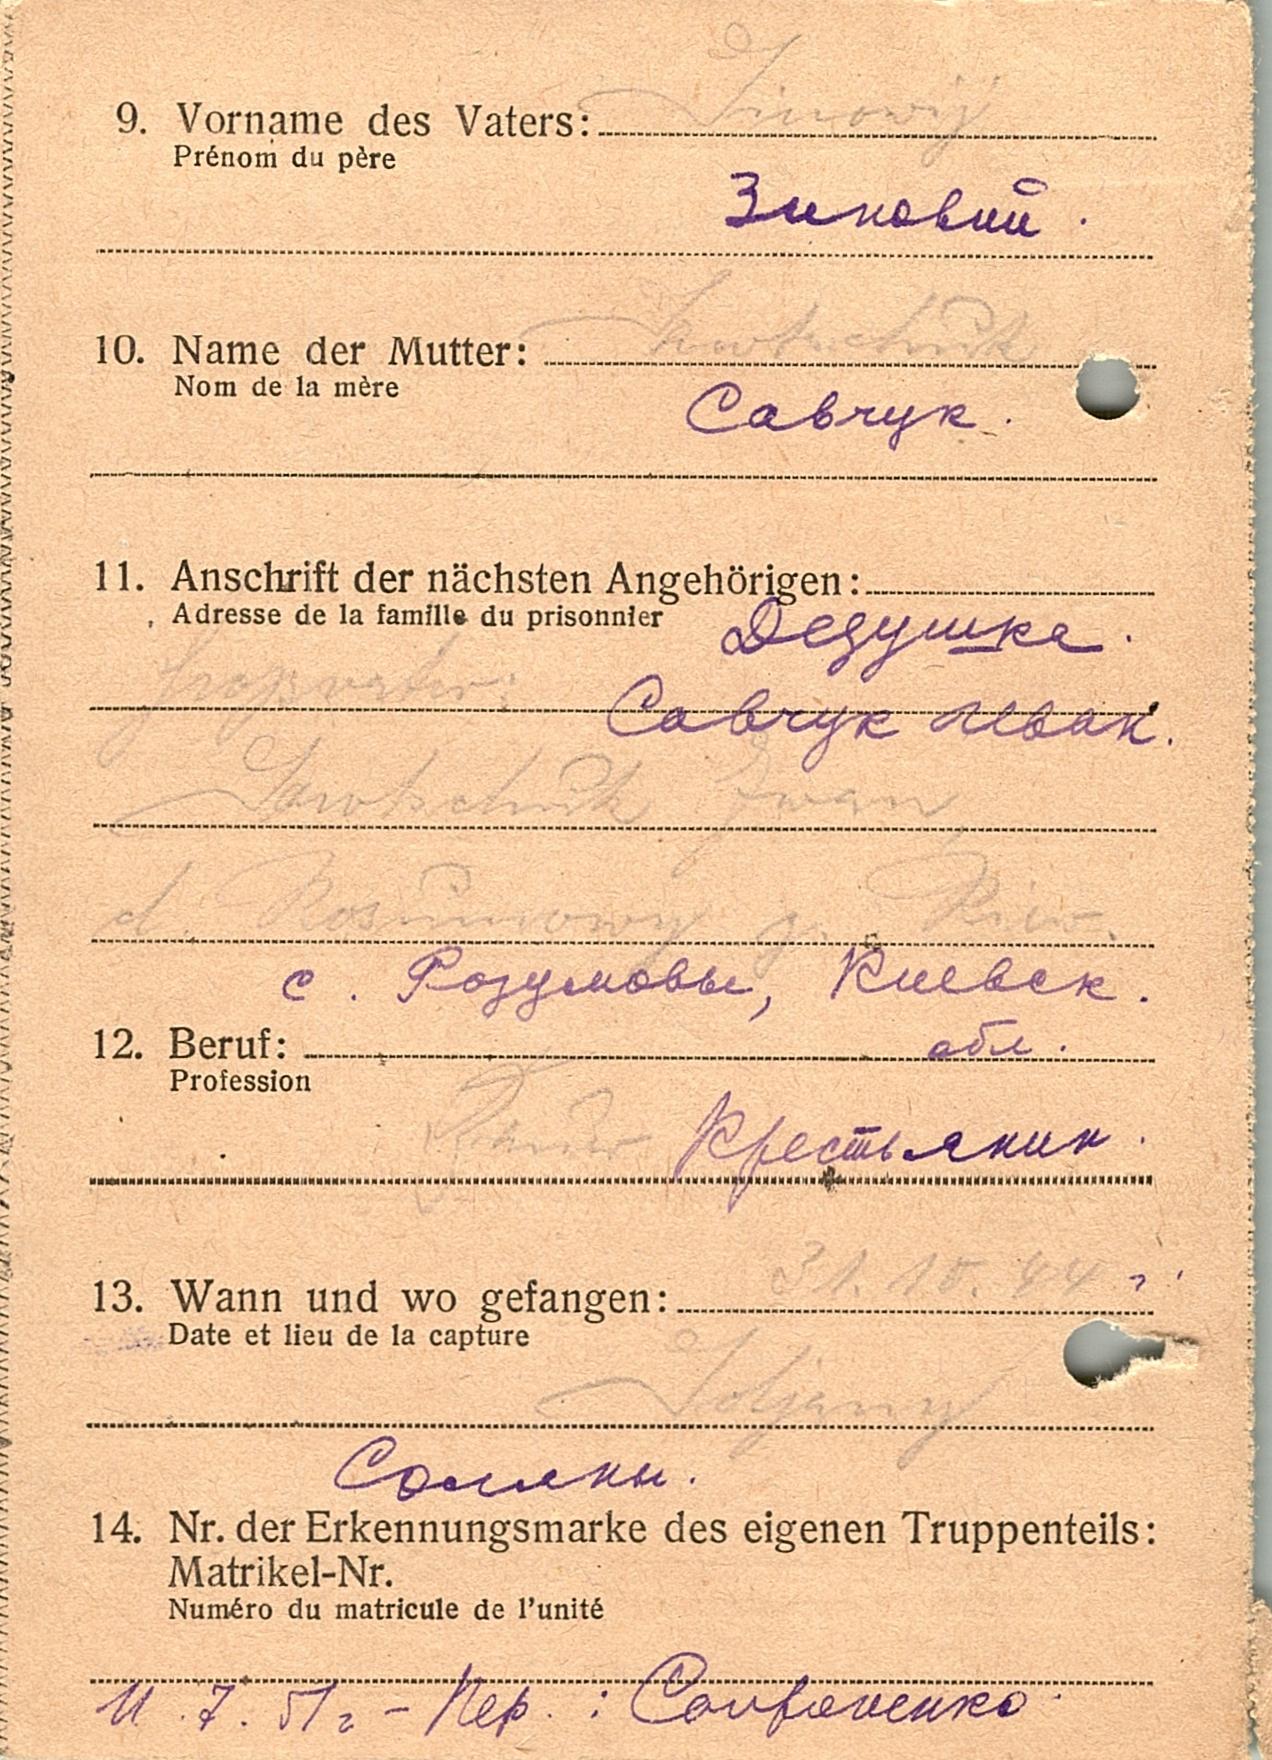 Sinowij
9. Vorname des Vaters:
Prénom du père
Зиновий.
Sawtschuk
10. Name der Mutter:
Nom de la mère
Савчук.
11. Anschrift der nächsten Angehörigen:
Adresse de la famille du prisonnier
Дедушка.
Großvater:
Савчук Иван.
Sawtschuk Iwan
d. Rosumowy g. Kiew.
с. Розумовы, Киевск.
12. Beruf: обл.
Profession
Bauer Крестьянин.
31.10.44
13. Wann und wo gefangen:
Date et lieu de la capture
Soljany
Соляны.
14. Nr. der Erkennungsmarke des eigenen Truppenteils:
Matrikel-Nr.
Numéro du matricule de l'unité
11.7.51г - Пер.: